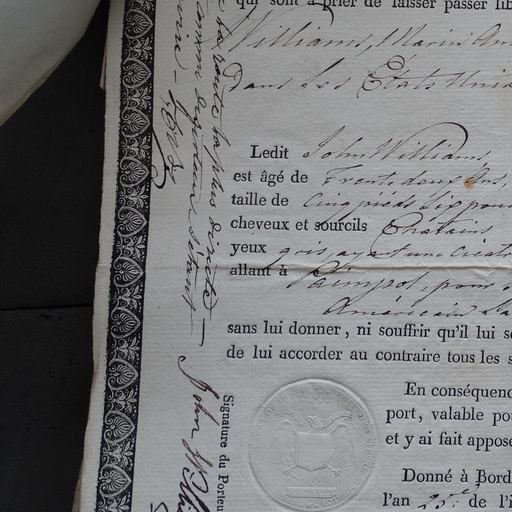 qui sont à prier de laisser passer lib
Williams, Marin Am
dans les États Unis
Ledit John Williams,
est âgé de Trente deux ans,
taille de Cinq pieds six pou
cheveux et sourcils Chatains
yeux gris ayant une cicatr
allant à Paimpol, pour s
Américain La
sans lui donner, ni souffrir qu'il lui s
de lui accorder au contraire tous les s
En conséquenc
port, valable po
et y ai fait appose
Donné à Bord
l'an 25.e de l'i
Signature du Porteu
John Willi
la route la plus directe